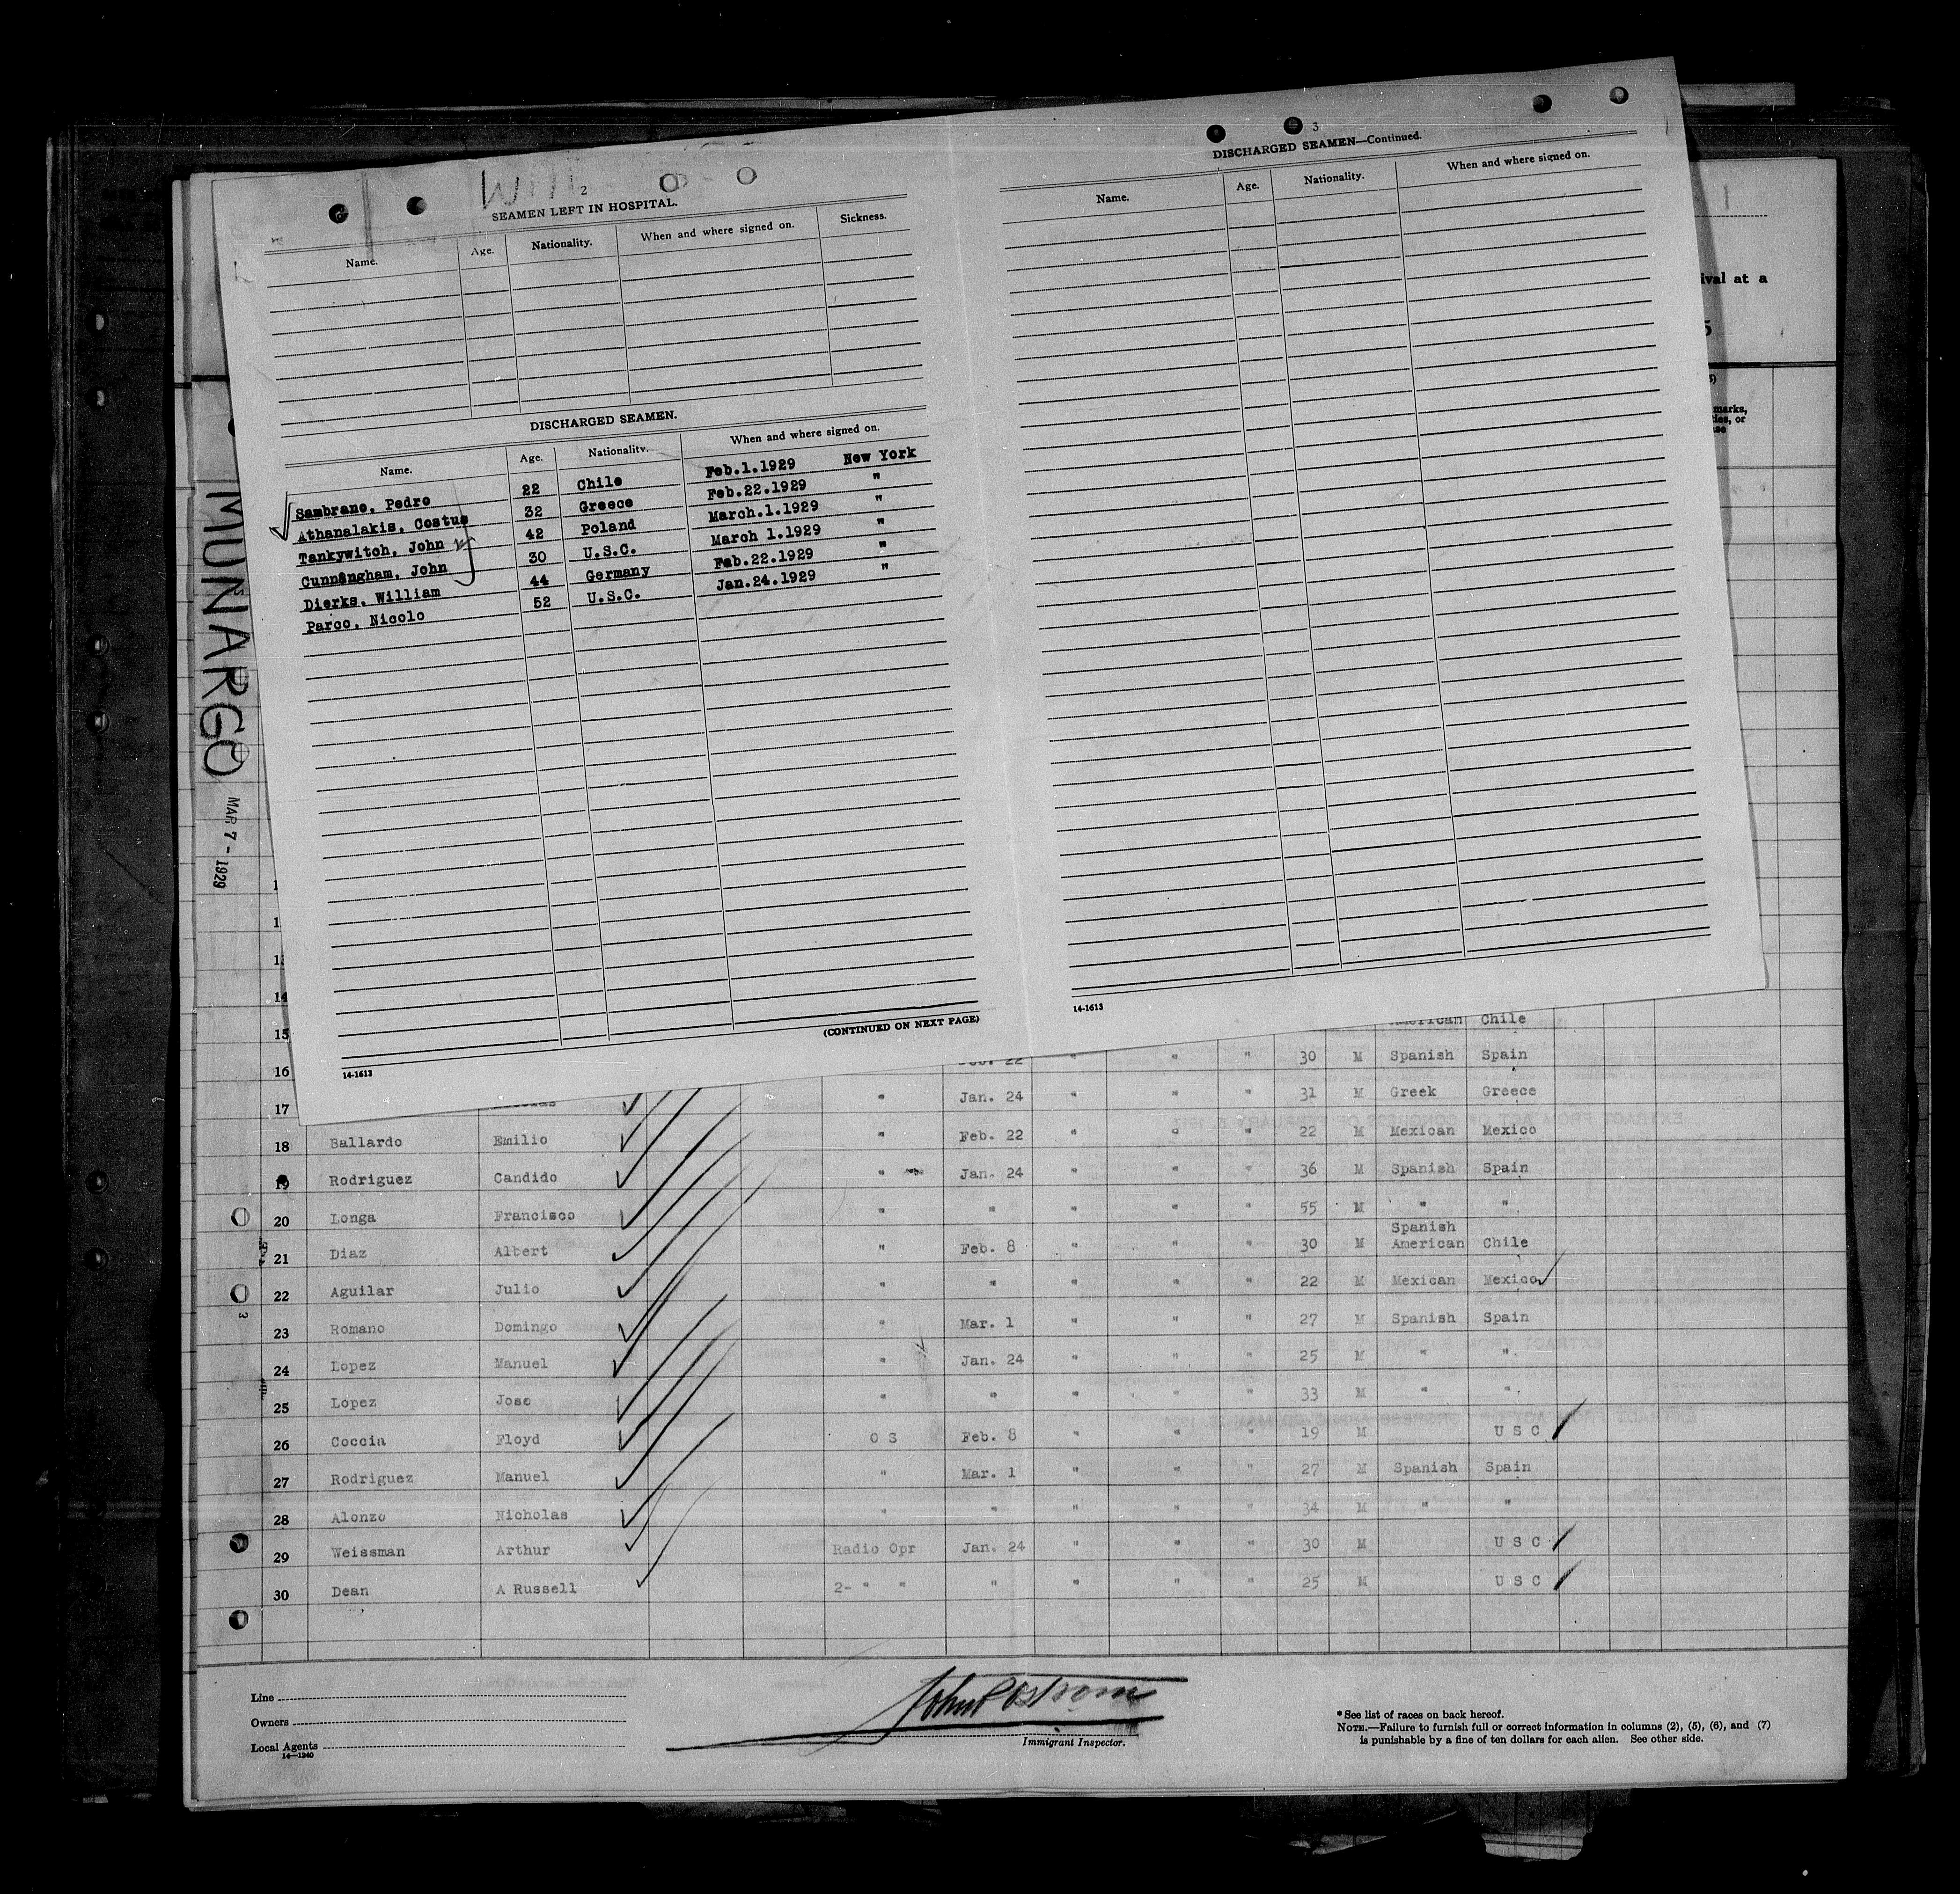 2
SEAMEN LEFT IN HOSPITAL.
Name. Age. Nationality. When and where signed on. Sickness.
DISCHARGED SEAMEN.
Name. Age. Nationality. When and where signed on.
Sambrano, Pedro 22 Chile Feb.1.1929 New York
Athanalakis, Costus 32 Greece Feb.22.1929 "
Tankywitch, John 42 Poland March.1.1929 "
Cunningham, John 30 U.S.C. March 1.1929 "
Dierks, William 44 Germany Feb.22.1929 "
Parco, Nicolo 52 U.S.C. Jan.24.1929 "
(CONTINUED ON NEXT PAGE)
14-1613
3
DISCHARGED SEAMEN—Continued.
Name. Age. Nationality. When and where signed on.
14-1613
ival at a
5
marks,
ties, or
MUNARGO
MAR 7 - 1929
14
15 American Chile
16 Feb. 22 " " " 30 M Spanish Spain
17 " Jan. 24 " " " 31 M Greek Greece
18 Ballardo Emilio " Feb. 22 " " " 22 M Mexican Mexico
19 Rodriguez Candido " Jan. 24 " " " 36 M Spanish Spain
20 Longa Francisco " " " " " 55 M " "
21 Diaz Albert " Feb. 8 " " " 30 M Spanish American Chile
22 Aguilar Julio " " " " " 22 M Mexican Mexico
23 Romano Domingo " Mar. 1 " " " 27 M Spanish Spain
24 Lopez Manuel " Jan. 24 " " " 25 M " "
25 Lopez Jose " " " " " 33 M " "
26 Coccia Floyd O S Feb. 8 " " " 19 M U S C
27 Rodriguez Manuel " Mar. 1 " " " 27 M Spanish Spain
28 Alonzo Nicholas " " " " " 34 M " "
29 Weissman Arthur Radio Opr Jan. 24 " " " 30 M U S C
30 Dean A Russell 2- " " " " " " 25 M U S C
Line
Owners
Local Agents
14—1240
Immigrant Inspector.
* See list of races on back hereof.
NOTE.—Failure to furnish full or correct information in columns (2), (5), (6), and (7)
is punishable by a fine of ten dollars for each alien. See other side.